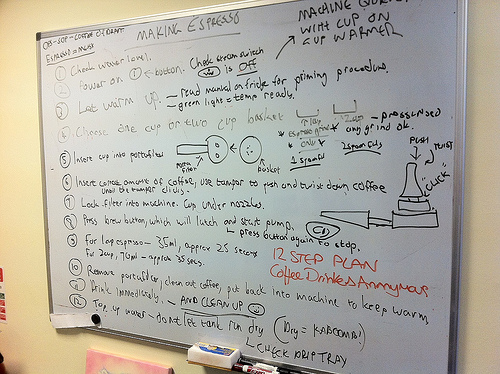 MAKING ESPRESSO
MACHINE
WITH CUP ON
CUP WARMER
① Check water level.
Check steam switch
is OFF
② Power on ← button.
③ Let warm up. - Read manual on fridge for priming procedure.
- green light = temp ready.
④ Choose one cup or two cup basket
ONLY
any grind ok.
1 spoonful
2 spoonfuls
⑤ Insert cup into portafilter
PORTA
FILTER
basket
PUSH
TWIST
"CLICK"
⑥ Insert correct amount of coffee, use tamper to push and twist down coffee
until the tamper clicks.
⑦ Lock filter into machine. Cup under nozzles.
⑧ Press brew button, which will latch and start pump.
press button again to stop.
⑨ For 1 cup espresso - 35ml, approx 25 seconds
for 2 cup, 70ml - approx 35 secs.
12 STEP PLAN
Coffee Drinkers Anonymous
⑩ Remove portafilter, clean out coffee, put back into machine to keep warm.
⑪ Drink immediately. - AND CLEAN UP
⑫ Top up water - do not let tank run dry (Dry = KABOOM!)
CHECK DRIP TRAY